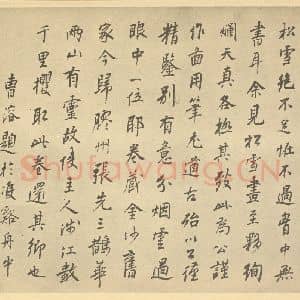 松雪絕不恠過者中無
書耳余見松雪畫至夥絢
爛天真各極其致此為公謹
作面用筆尤遒古殆以公謹
精鑒別有意分煙雲過
眼中一位耶卷藏金沙舊
家今歸膠州張先三鵲華
兩山有靈故使主人涉江數
千里攫取此卷還其鄉也
曹溶題於雙谿舟中
Shufawang.CN